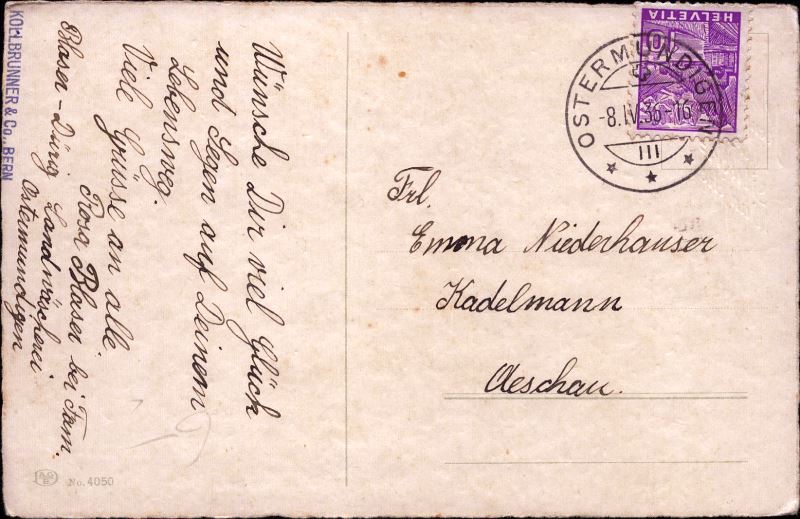 KOLLBRUNNER & Co., BERN
Wünsche Dir viel Glück
und Segen auf Deinem
Lebensweg.
Viele Grüsse an alle
Rosa Blaser bei Fam.
Blaser-Dürig Landwäscherei
Ostermundigen
No. 4050
HELVETIA
10
OSTERMUNDIGEN
-8.IV.36-16
III
Frl.
Emma Niederhauser
Kadelmann
Aeschau.